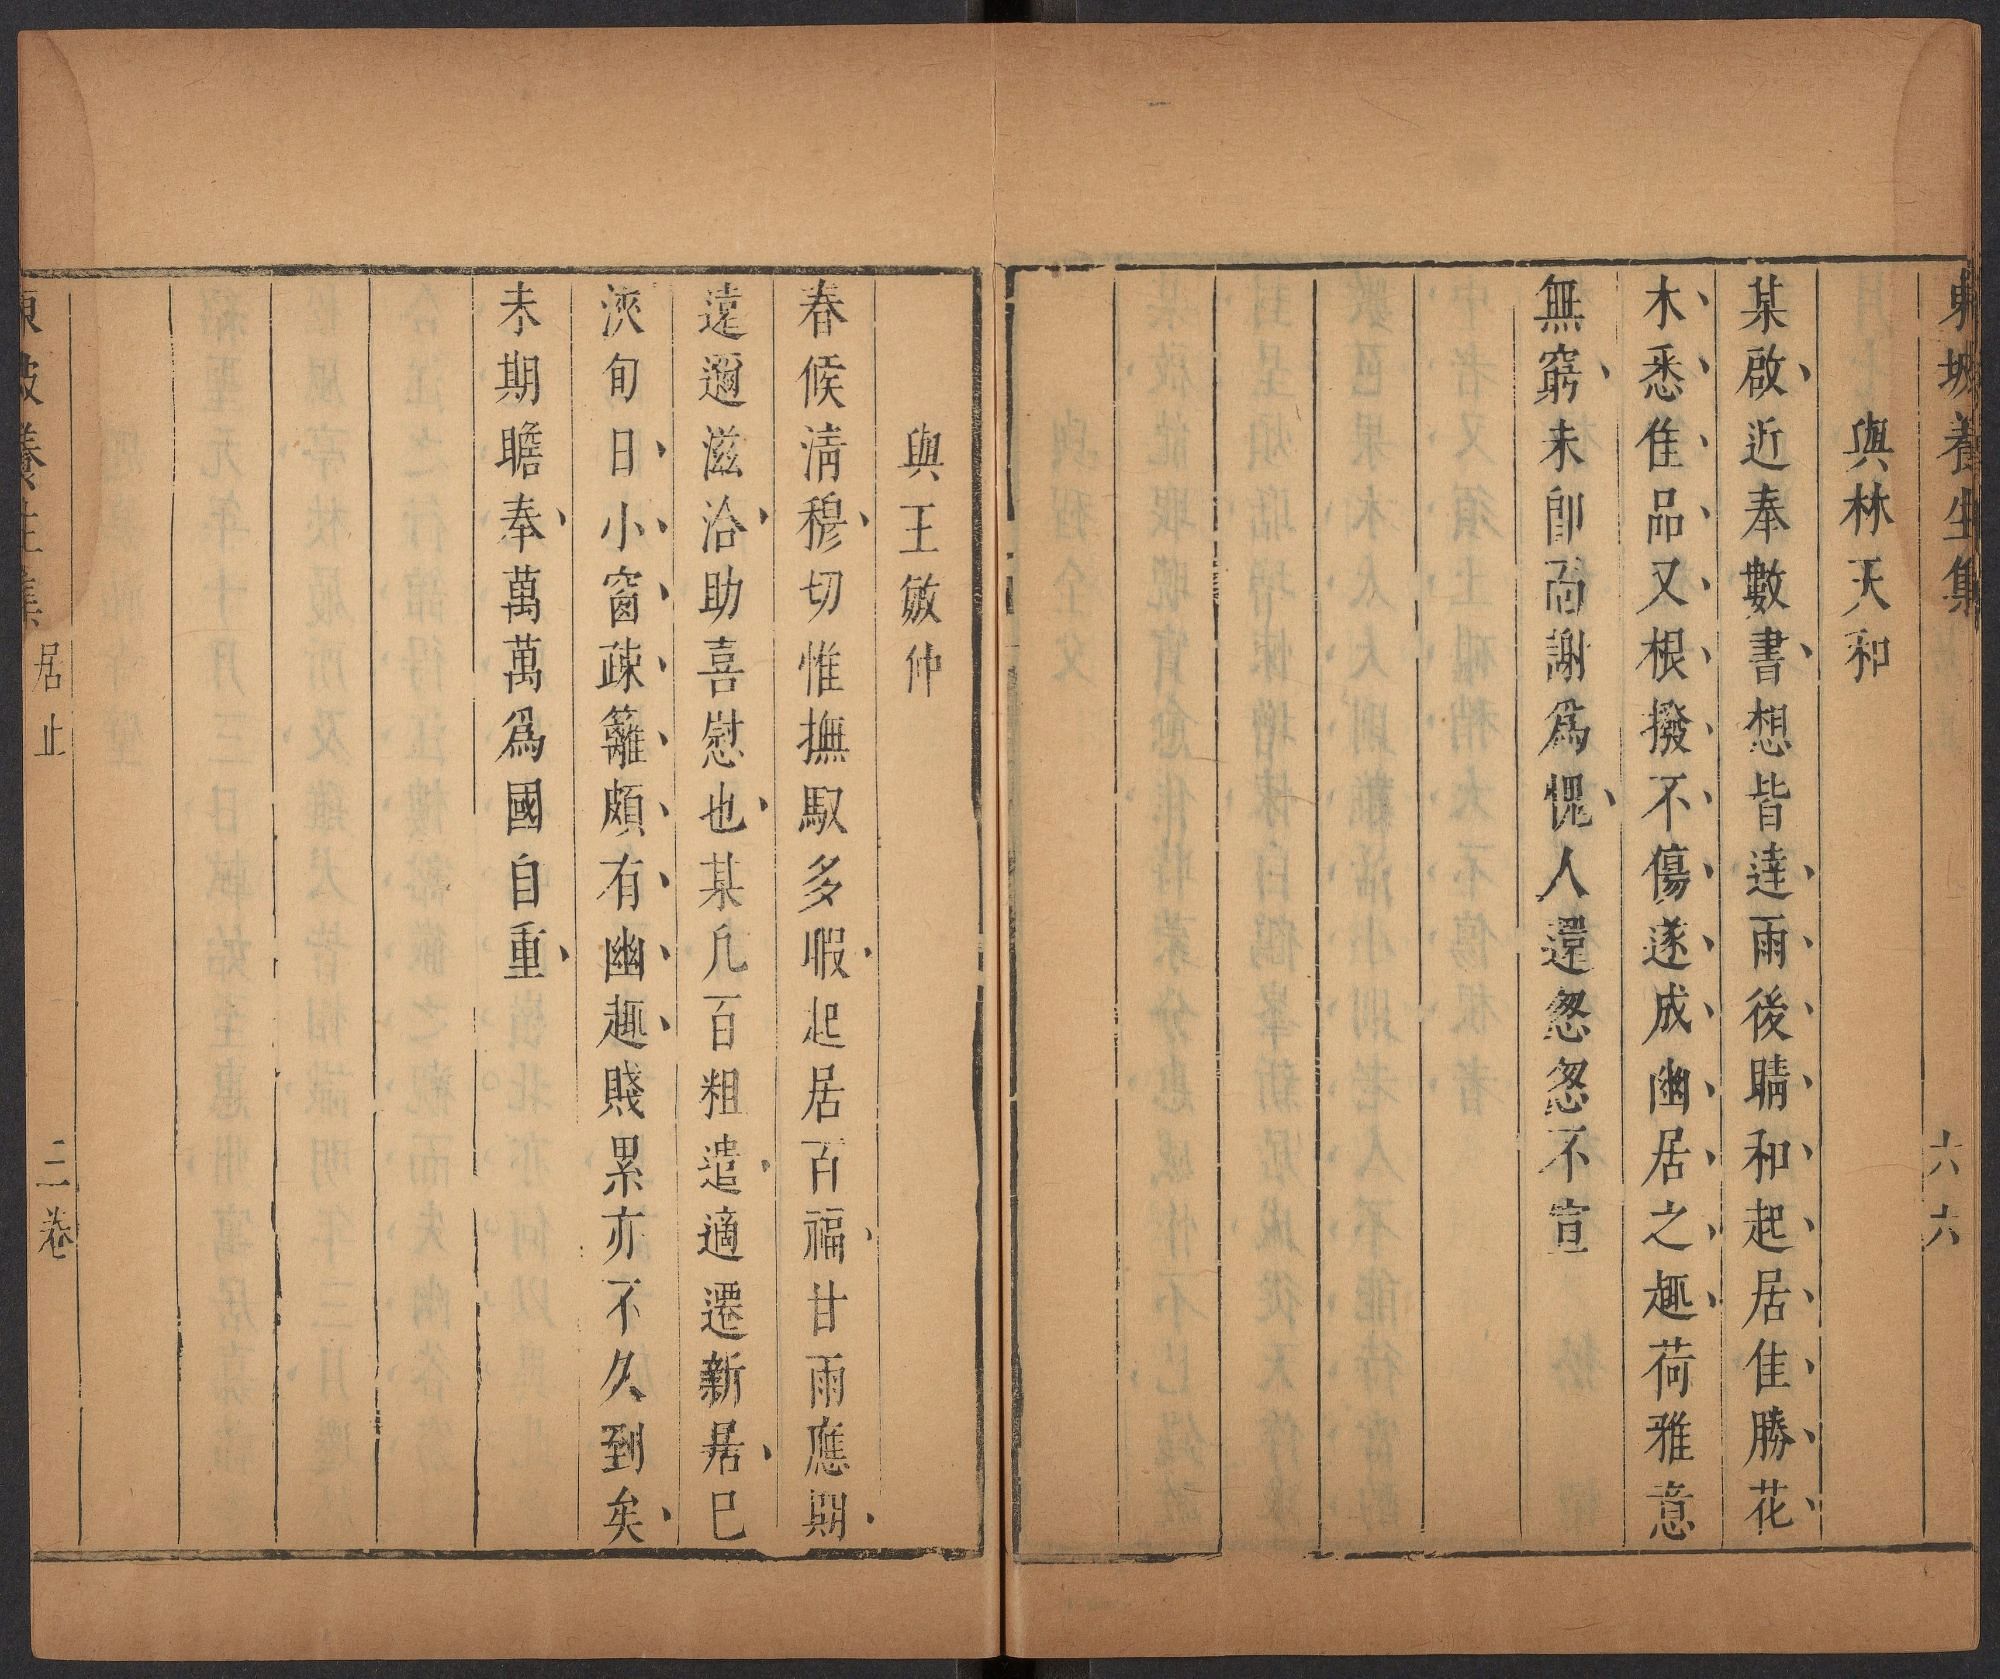 東坡養生集
六六
與林天和
某啟近奉數書想皆達雨後晴和起居佳勝花
木悉佳品又根撥不傷遂成幽居之趣荷雅意
無窮未卽面謝爲愧人還怱怱不宣
與王敏仲
春候淸穆切惟撫馭多暇起居百福甘雨應期
遠邇滋洽助喜慰也某凡百粗遣適遷新居已
浹旬日小窗疎籬頗有幽趣賤累亦不久到矣
未期瞻奉萬萬爲國自重
東坡養生集
居止
三卷